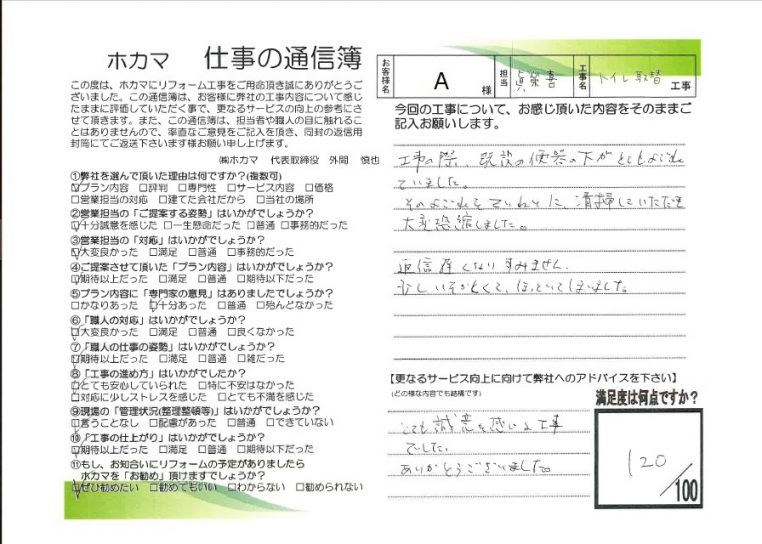 ホカマ 仕事の通信簿
この度は、ホカマにリフォーム工事をご用命頂き誠にありがとうご
ざいました。この通信簿は、お客様に弊社の工事内容について感じ
たままに評価していただく事で、更なるサービスの向上の参考にさ
せて頂きます。また、この通信簿は、担当者や職人の目に触れるこ
とはありませんので、率直なご意見をご記入を頂き、同封の返信用
封筒にてご返送下さいます様お願い申し上げます。
㈱ホカマ 代表取締役 外間 慎也
①弊社を選んで頂いた理由は何ですか?(複数可)
□プラン内容 □評判 □専門性 □サービス内容 □価格
□営業担当の対応 □建てた会社だから □当社の場所
②営業担当の「ご提案する姿勢」はいかがでしょうか?
□十分誠意を感じた □一生懸命だった □普通 □事務的だった
③営業担当の「対応」はいかがでしょうか?
□大変良かった □満足 □普通 □事務的だった
④ご提案させて頂いた「プラン内容」はいかがでしょうか?
□期待以上だった □満足 □普通 □期待以下だった
⑤プラン内容に「専門家の意見」はありましたでしょうか?
□かなりあった □十分あった □普通 □殆んどなかった
⑥「職人の対応」はいかがでしょうか?
□大変良かった □満足 □普通 □良くなかった
⑦「職人の仕事の姿勢」はいかがでしょうか?
□期待以上だった □満足 □普通 □雑だった
⑧「工事の進め方」はいかがでしたか?
□とても安心していられた □特に不安はなかった
□対応に少しストレスを感じた □とても不満を感じた
⑨現場の「管理状況(整理整頓等)」はいかがでしょうか?
□言うことなし □配慮があった □普通 □できていない
⑩「工事の仕上がり」はいかがでしょうか?
□期待以上だった □満足 □普通 □期待以下だった
⑪もし、お知合いにリフォームの予定がありましたら
ホカマを「お勧め」頂けますでしょうか?
□ぜひ勧めたい □勧めてもいい □わからない □勧められない
お客様名 A 様 担当 眞榮喜 工事名 トイレ取替 工事
今回の工事について、お感じ頂いた内容をそのままご
記入お願いします。
工事の際、既設の便器の下がとてもよごれ
ていました。
そのよごれをていねいに、清掃していただき
大変恐縮しました。
返信遅くなりすみません。
少しいそがしくて、ほっといてしまいました。
【更なるサービス向上に向けて弊社へのアドバイスを下さい】
(どの様な内容でも結構です)
とても誠意を感じる工事
でした。
ありがとうございました。
満足度は何点ですか?
120/100